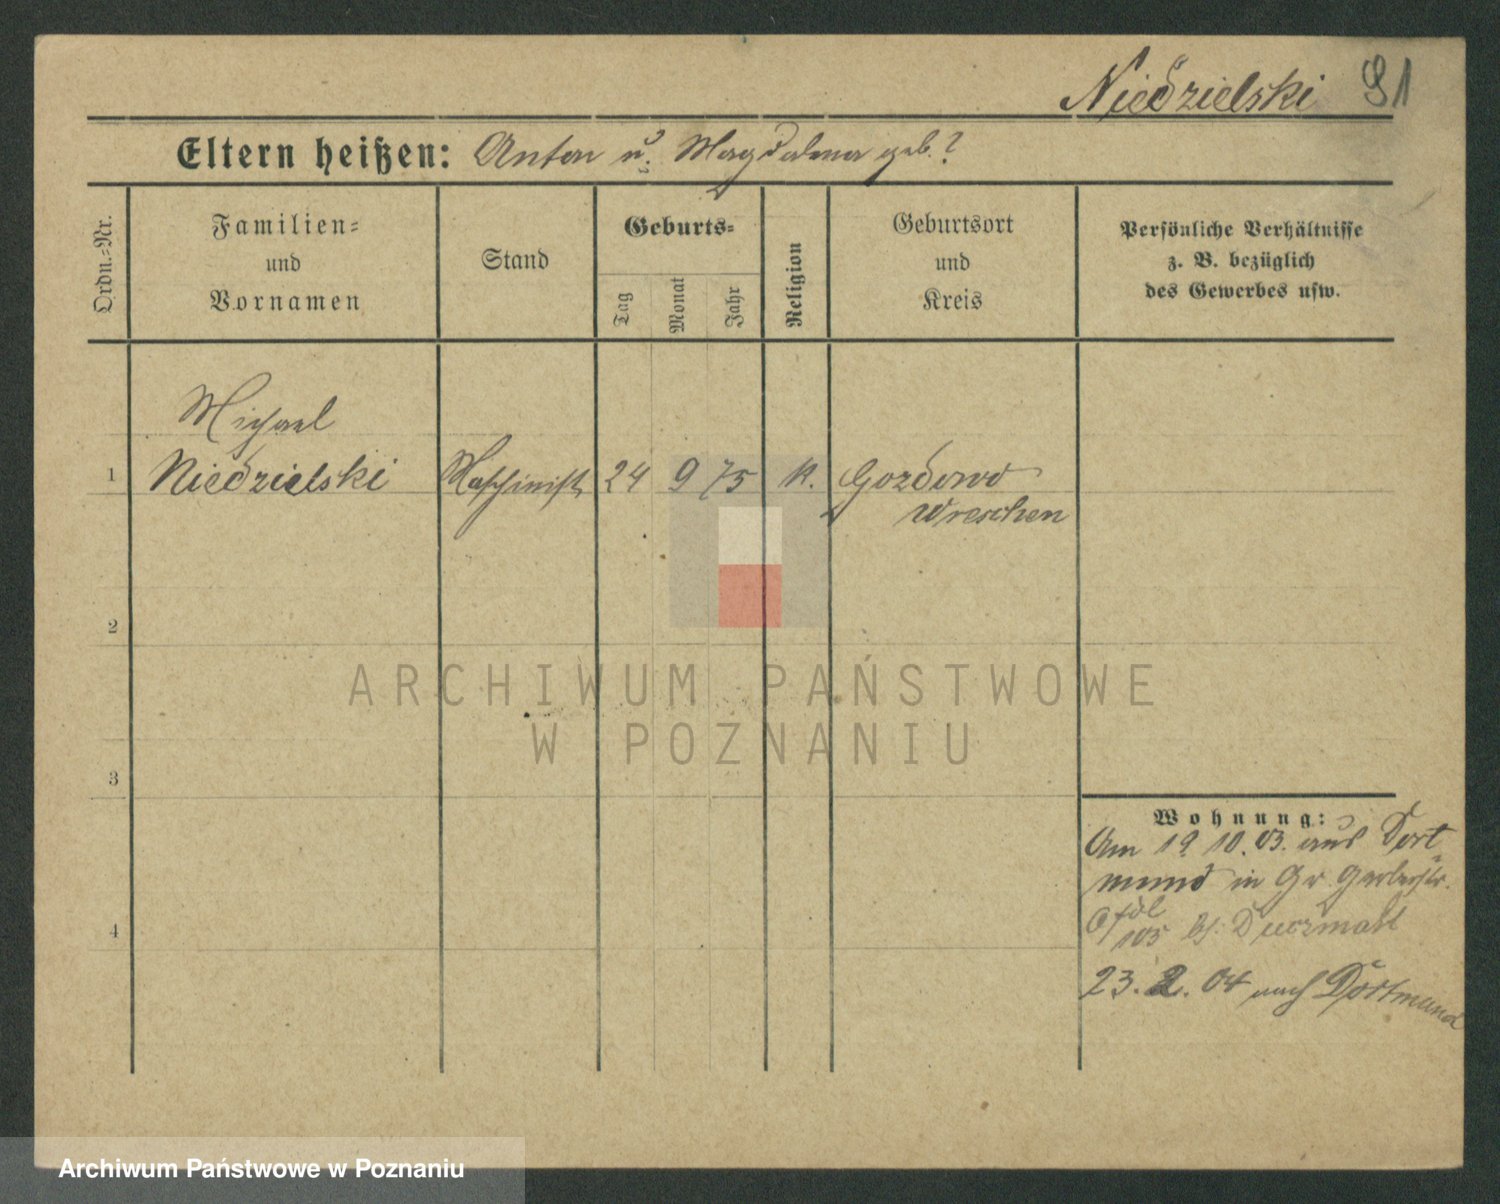 Niedzielski 91
Eltern heißen: Anton u. Magdalena geb.?
Ordn.-Nr.
Familien-
und
Vornamen
Stand
Geburts-
Tag
Monat
Jahr
Religion
Geburtsort
und
Kreis
Persönliche Verhältnisse
z. B. bezüglich
des Gewerbes usw.
Michael
1 Niedzielski Maschinist 24 9 75 k. Gozdowo
Wreschen
2
ARCHIWUM PAŃSTWOWE
W POZNANIU
3
Wohnung:
Am 19. 10. 03. aus Dort-
mund in Gr. Gerberstr.
105 bei
4
23. 2. 04 nach Dortmund
Archiwum Państwowe w Poznaniu